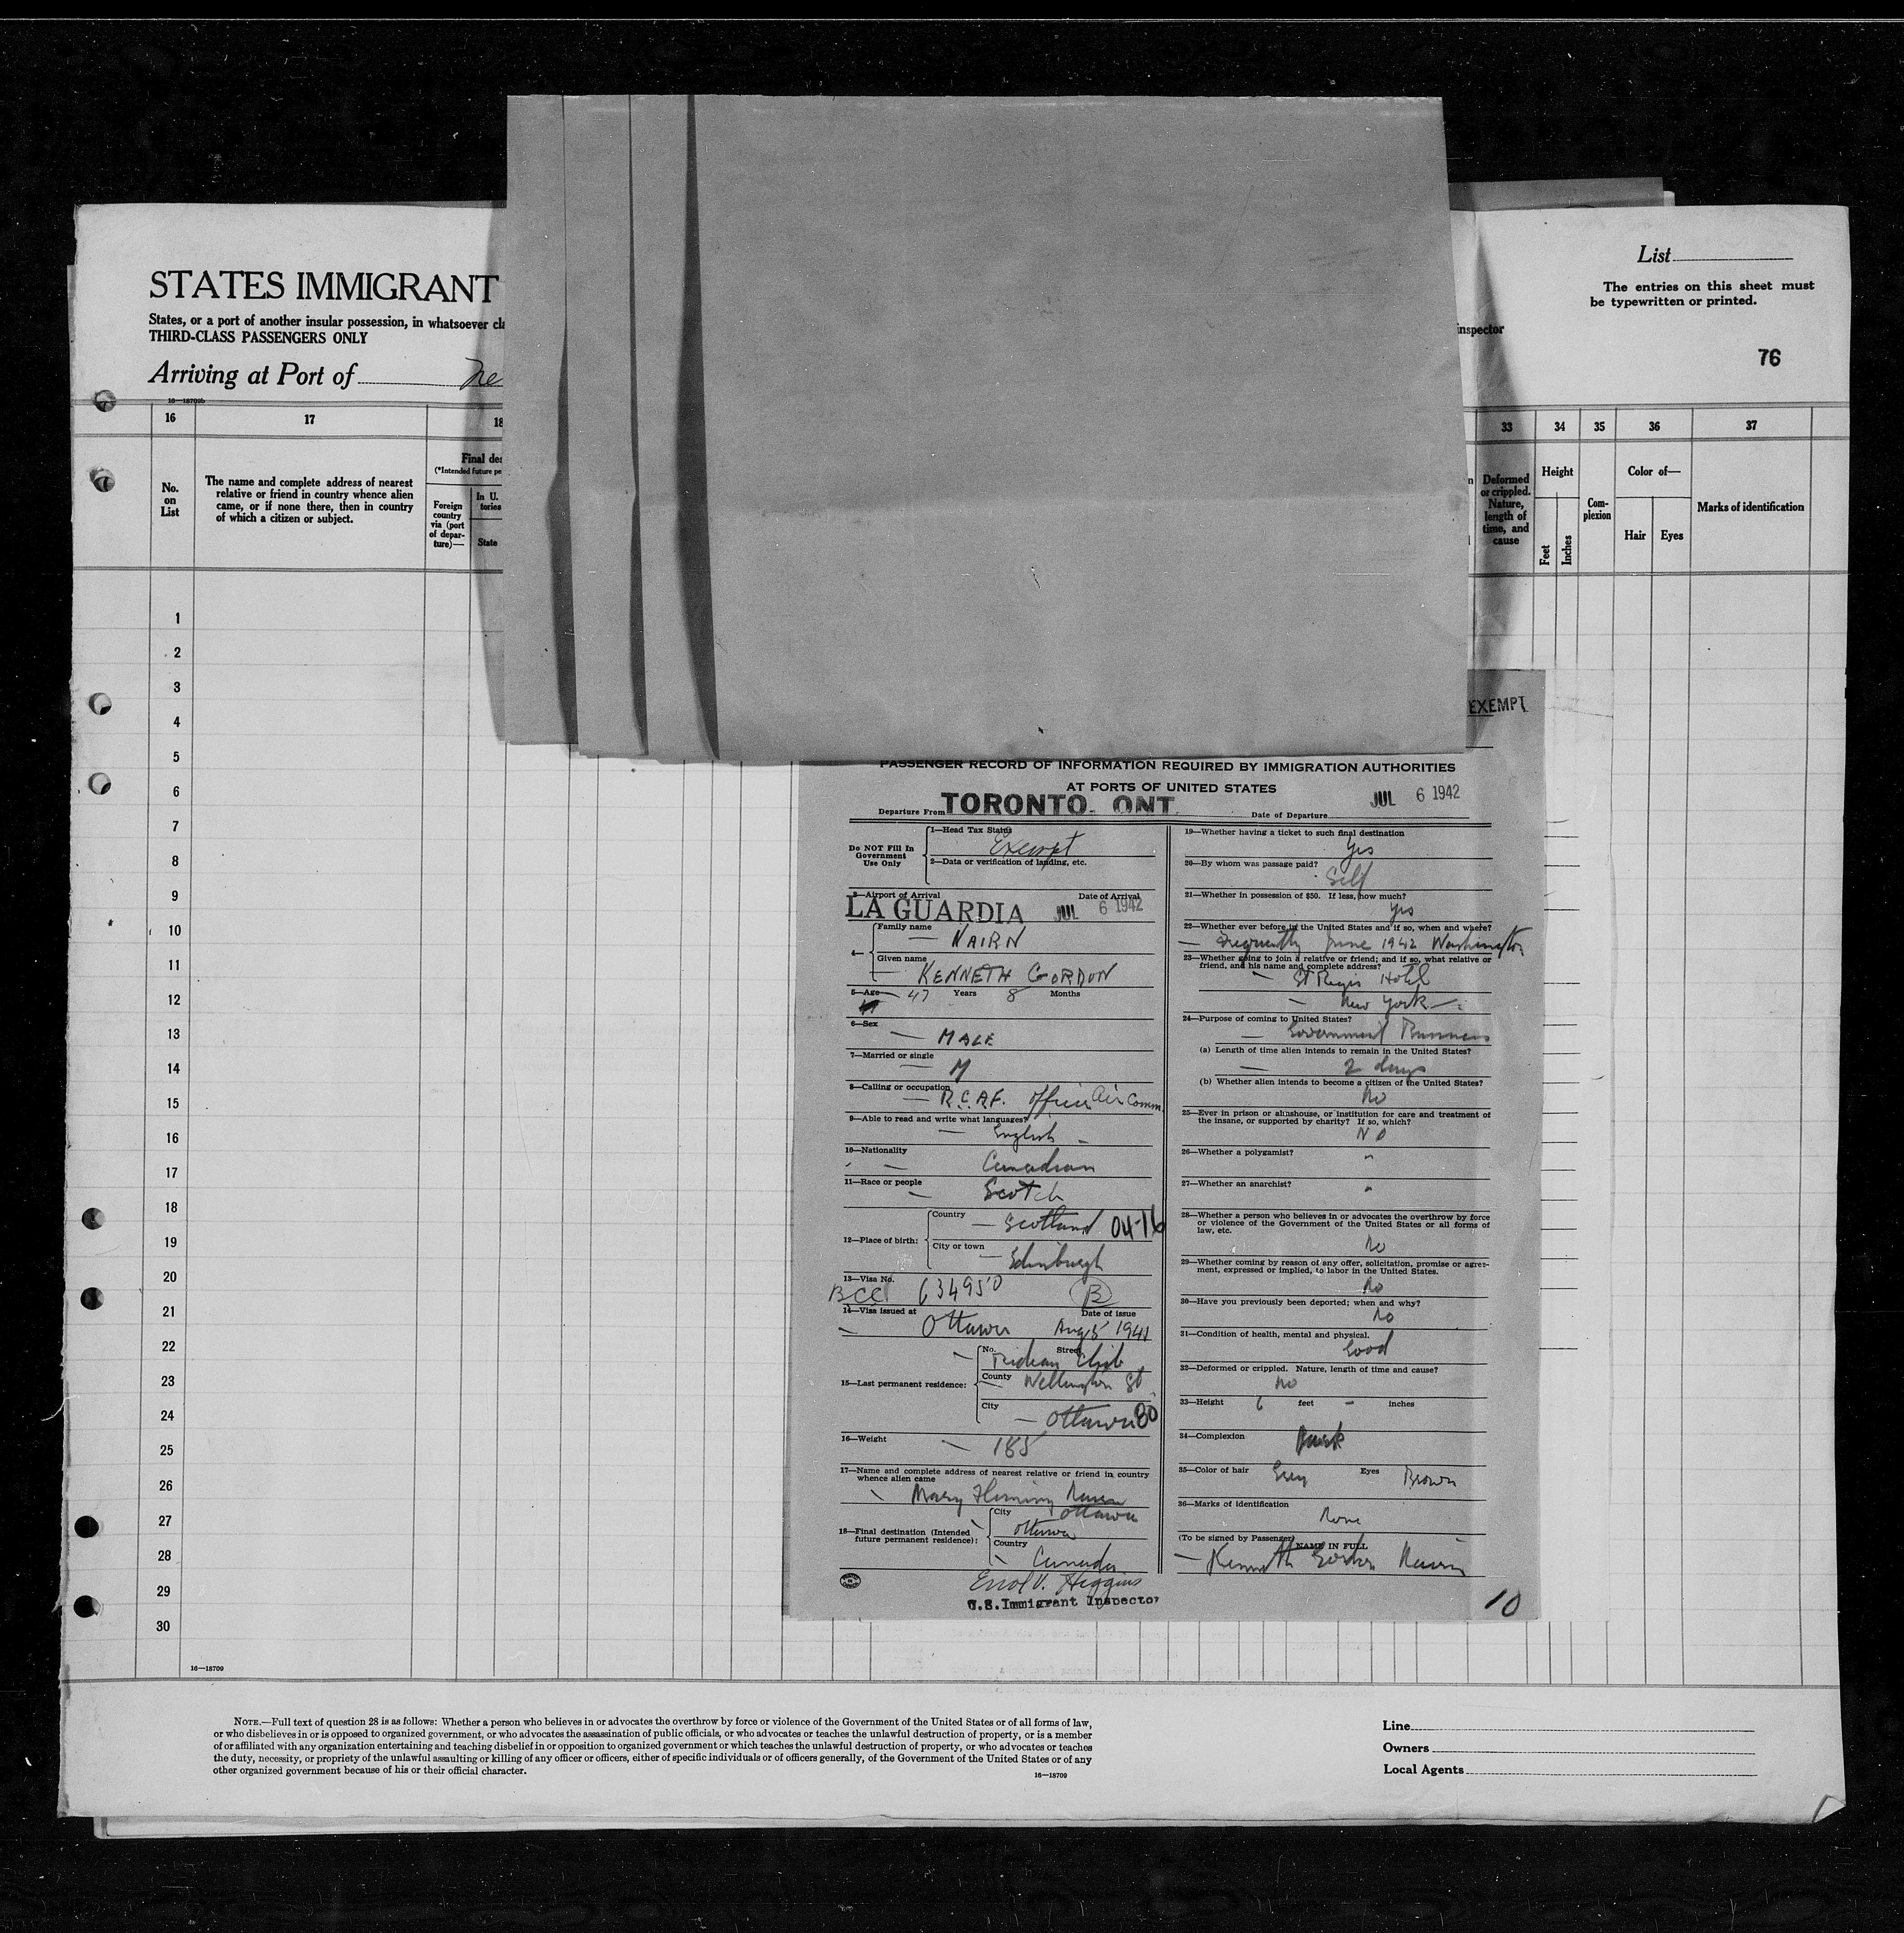 STATES IMMIGRANT
States, or a port of another insular possession, in whatsoever
THIRD-CLASS PASSENGERS ONLY
Arriving at Port of
16—18709b
List
The entries on this sheet must
be typewritten or printed.
inspector
76
16 17 18 33 34 35 36 37
No.
on
List
The name and complete address of nearest
relative or friend in country whence alien
came, or if none there, then in country
of which a citizen or subject.
Final
(*Intended future
Foreign
country
via (port
of depar-
ture)—
In U.
State
Deformed
or crippled.
Nature,
length of
time, and
cause
Height
Feet
Inches
Com-
plexion
Color of—
Hair Eyes
Marks of identification
1
2
3
4
5
6
7
8
9
10
11
12
13
14
15
16
17
18
19
20
21
22
23
24
25
26
27
28
29
30
16—18709
EXEMPT
PASSENGER RECORD OF INFORMATION REQUIRED BY IMMIGRATION AUTHORITIES
AT PORTS OF UNITED STATES
Departure From TORONTO, ONT. Date of Departure JUL 6 1942
Do NOT Fill In
Government
Use Only
1—Head Tax Status
Exempt
2—Data or verification of landing, etc.
3—Airport of Arrival Date of Arrival
LA GUARDIA JUL 6 1942
4—
Family name
— NAIRN
Given name
— KENNETH GORDON
5—Age — 47 Years 8 Months
6—Sex
— MALE
7—Married or single
— M
8—Calling or occupation
— R.C.A.F. Officer Air Comm.
9—Able to read and write what languages?
— English —
10—Nationality
— Canadian
11—Race or people
— Scotch
12—Place of birth:
Country
— Scotland 04-16
City or town
— Edinburgh
13—Visa No.
BCC 634950 B
14—Visa issued at Date of issue
— Ottawa Aug 5 1941
15—Last permanent residence:
No. Street
— Rideau Club
County
— Wellington St.
City
— Ottawa 80
16—Weight
— 185
17—Name and complete address of nearest relative or friend in country
whence alien came
Mary Fleming Nairn
Ottawa
18—Final destination (Intended
future permanent residence):
City
Ottawa
Country
Canada
Errol V. Higgins
U.S. Immigrant Inspector
19—Whether having a ticket to such final destination
Yes
20—By whom was passage paid?
Self
21—Whether in possession of $50. If less, how much?
Yes
22—Whether ever before in the United States and if so, when and where?
— Frequently June 1942 Washington
23—Whether going to join a relative or friend; and if so, what relative or
friend, and his name and complete address?
— St Regis Hotel
— New York —
24—Purpose of coming to United States?
— Government Business
(a) Length of time alien intends to remain in the United States?
— 2 days
(b) Whether alien intends to become a citizen of the United States?
No
25—Ever in prison or almshouse, or institution for care and treatment of
the insane, or supported by charity? If so, which?
NO
26—Whether a polygamist?
"
27—Whether an anarchist?
"
28—Whether a person who believes in or advocates the overthrow by force
or violence of the Government of the United States or all forms of
law, etc.
No
29—Whether coming by reason of any offer, solicitation, promise or agree-
ment, expressed or implied, to labor in the United States.
No
30—Have you previously been deported; when and why?
No
31—Condition of health, mental and physical.
Good
32—Deformed or crippled. Nature, length of time and cause?
No
33—Height 6 feet — inches
34—Complexion Dark
35—Color of hair Grey Eyes Brown
36—Marks of identification
None
(To be signed by Passenger) NAME IN FULL
— Kenneth Gordon Nairn
10
NOTE.—Full text of question 28 is as follows: Whether a person who believes in or advocates the overthrow by force or violence of the Government of the United States or of all forms of law,
or who disbelieves in or is opposed to organized government, or who advocates the assassination of public officials, or who advocates or teaches the unlawful destruction of property, or is a member
of or affiliated with any organization entertaining and teaching disbelief in or opposition to organized government or which teaches the unlawful destruction of property, or who advocates or teaches
the duty, necessity, or propriety of the unlawful assaulting or killing of any officer or officers, either of specific individuals or of officers generally, of the Government of the United States or of any
other organized government because of his or their official character.
16—18709
Line
Owners
Local Agents